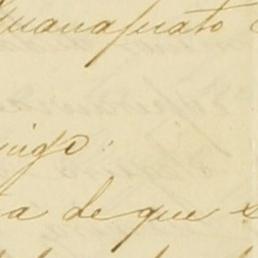 Guanajuato
migo:
ta de que s